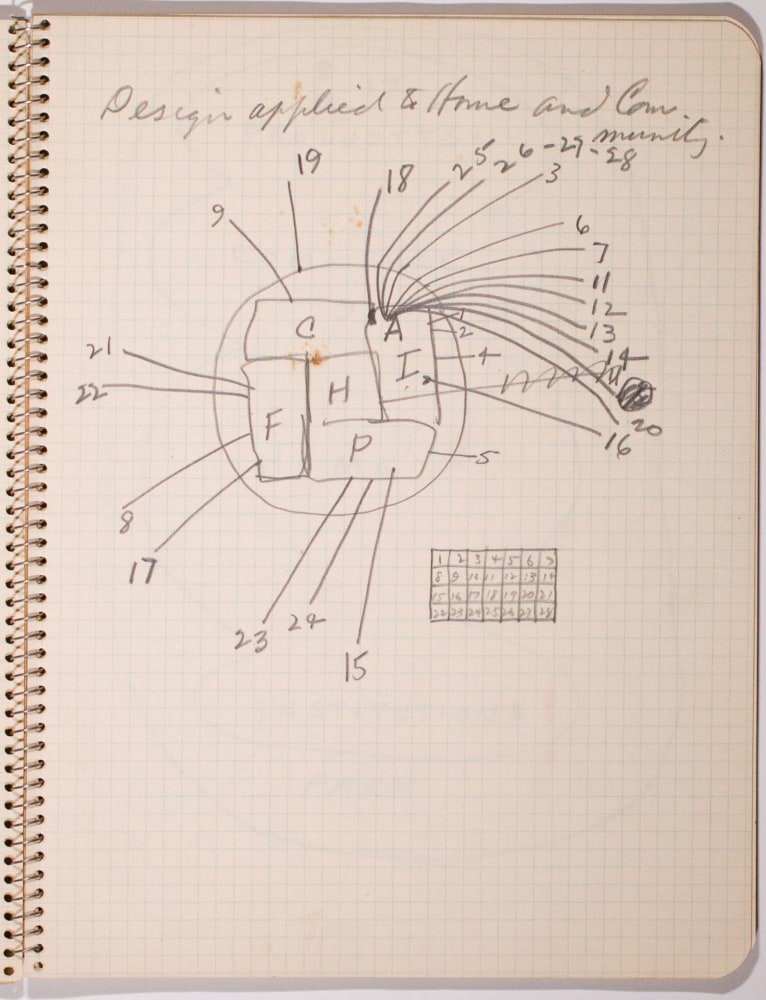 Design applied to Home and Com-
munity.
19
18
25
26-27-28
3
9
6
7
11
12
13
14
1
2
4
C
A
I
H
F
P
21
22
20
16
5
8
17
23
24
15
1 2 3 4 5 6 7
8 9 10 11 12 13 14
15 16 17 18 19 20 21
22 23 24 25 26 27 28